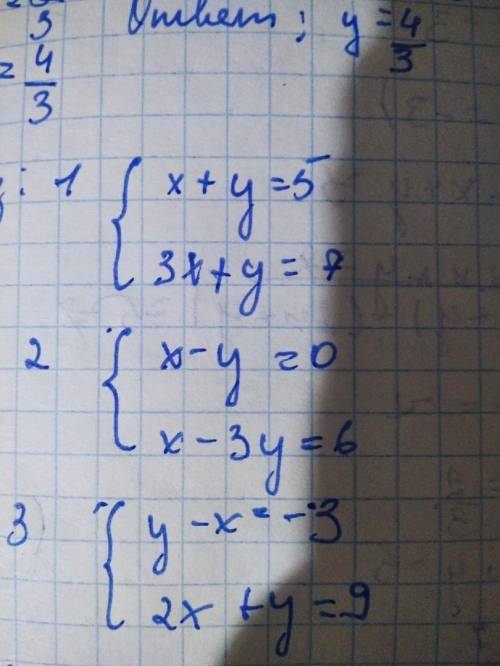 3 Ответ: y = 4/3
= 4/3
: 1 { x + y = 5
3x + y = 7
2 { x - y = 0
x - 3y = 6
3) { y - x = -3
2x + y = 9